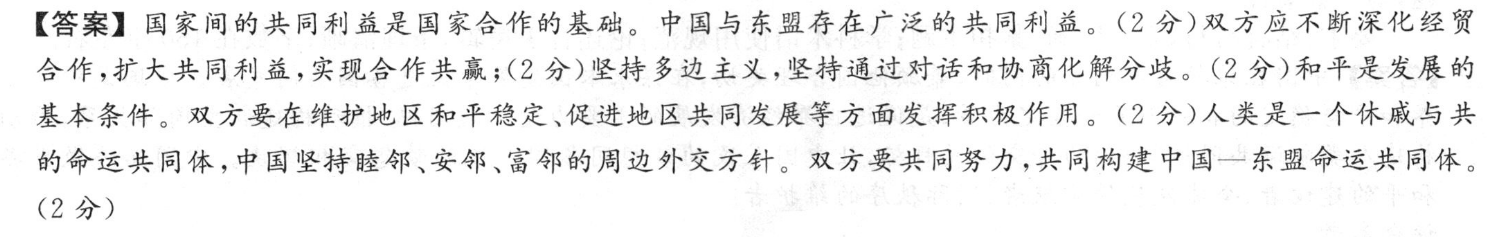 【答案】国家间的共同利益是国家合作的基础。中国与东盟存在广泛的共同利益。(2分)双方应不断深化经贸
合作,扩大共同利益,实现合作共赢;(2分)坚持多边主义,坚持通过对话和协商化解分歧。(2分)和平是发展的
基本条件。双方要在维护地区和平稳定、促进地区共同发展等方面发挥积极作用。(2分)人类是一个休戚与共
的命运共同体,中国坚持睦邻、安邻、富邻的周边外交方针。双方要共同努力,共同构建中国—东盟命运共同体。
(2分)